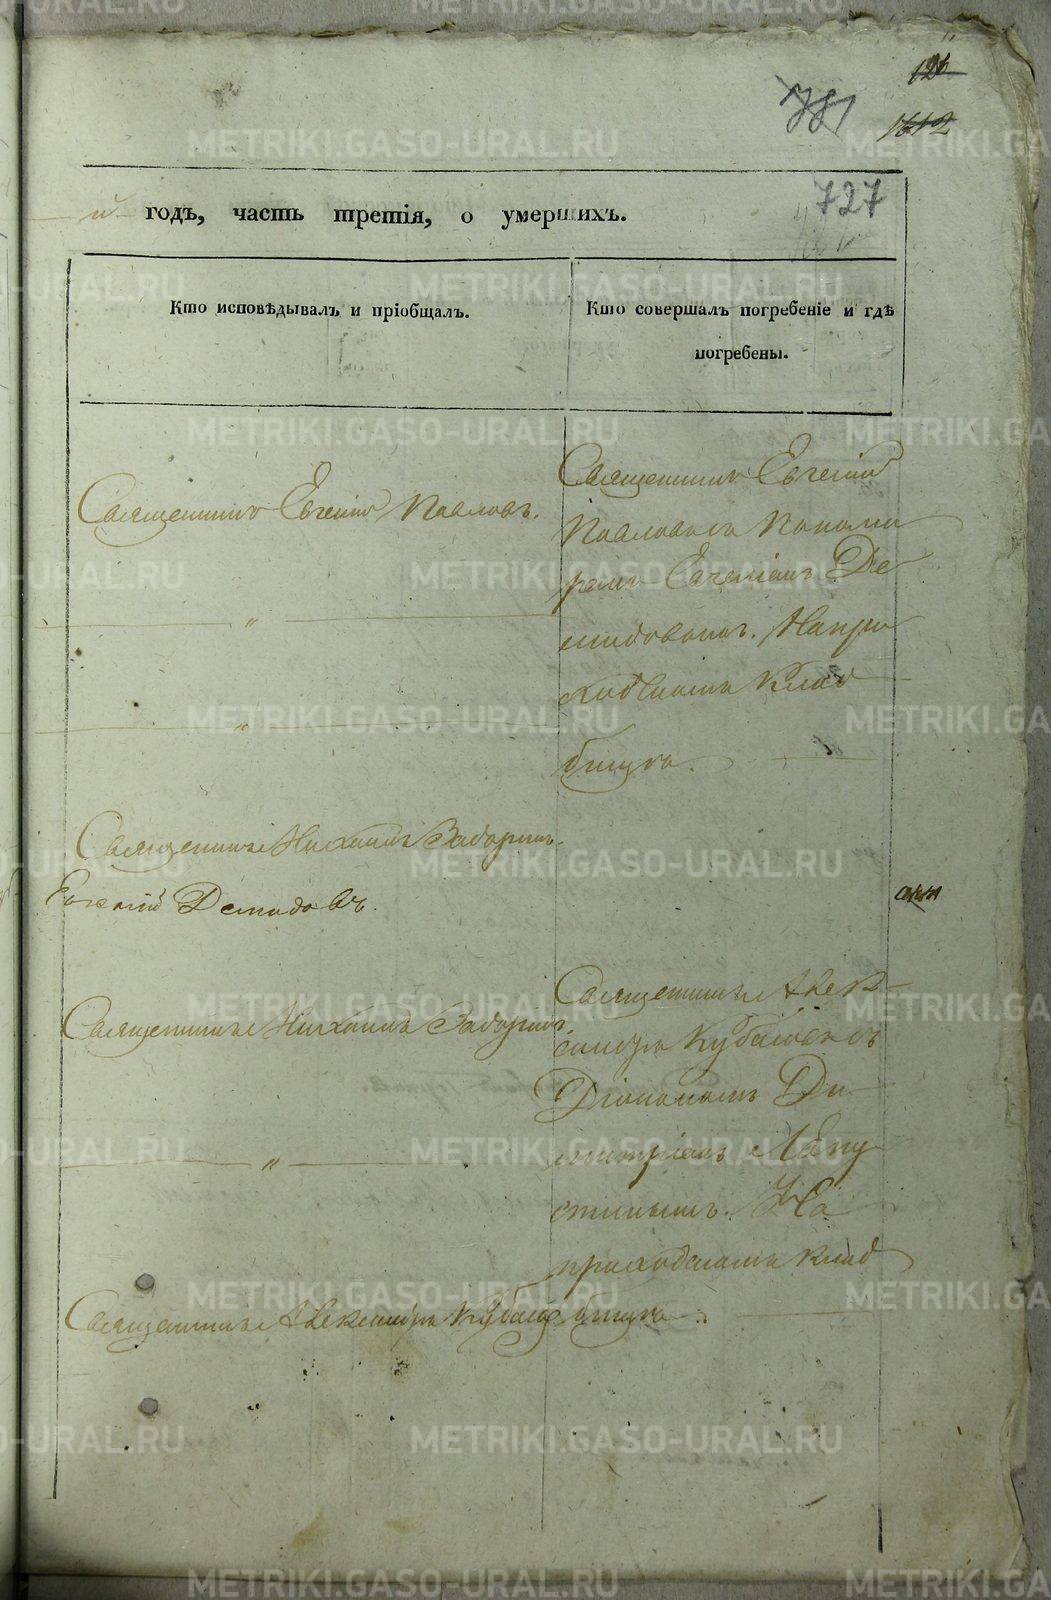 126
781
1612
727
й годъ, часть третія, о умершихъ.
Кто исповѣдывалъ и пріобщалъ.
Кто совершалъ погребеніе и гдѣ
погребены.
Священникъ Евгеній Павловъ.
Священникъ Евгеній
Павловъ съ Понома
ремъ Евгеніемъ Де
мидовымъ. На при
ходскомъ клад
бищѣ.
"
"
Священникъ Михаилъ Задоринъ.
Евгеній Демидовъ.
Священникъ Михаилъ Задоринъ.
Священникъ Алек
сандръ Кубасовъ съ
Діакономъ Ди
митріемъ Лапу
стинымъ. На
приходскомъ клад
бищѣ.
"
Священникъ Александръ Кубасо
METRIKI.GASO-URAL.RU